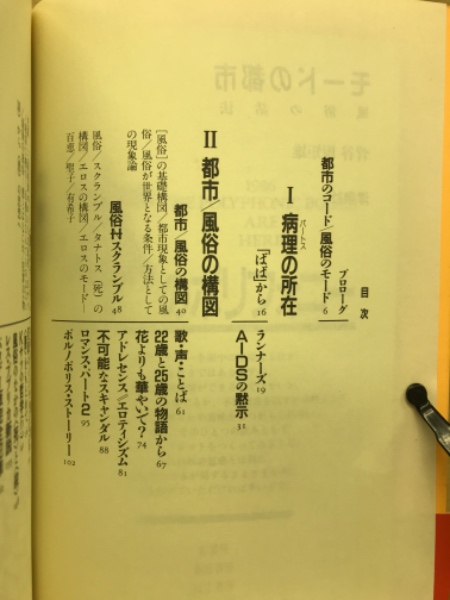 目次
プロローグ
都市のコード/風俗のモード 6
I 病理の所在
パートス
「ばば」から 16
ランナーズ 19
AIDSの黙示 31
II 都市/風俗の構図
都市/風俗の構図 40
[風俗]の基礎構図/都市現象としての風
俗/風俗が世界となる条件/方法として
の現象論
風俗サスクランブル 48
風俗/スクランブル/タナトス(死)の
構図/エロスの構図/エロスのモード—
百恵/聖子/有希子
歌・声・ことば 61
22歳と25歳の物語から 67
花よりも華やいで? 74
アドレセンス/エロティシズム 81
不可能なスキャンダル 88
ロマンス・パート2 95
ポルノポリス・ストーリー 102
モードの都市